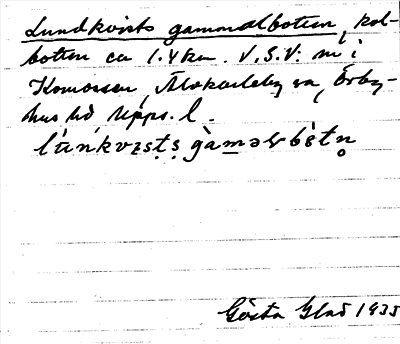 Lundkvists gammalbotten, kol-
botten ca 1.4 km. V.S.V. ni i
Komossen, Älvkarleby sn, Örby-
hus hd, Upps. l.
lu̇nkvɪsṭṣ gàmǝɫbètn̥
Gösta Glad 1935